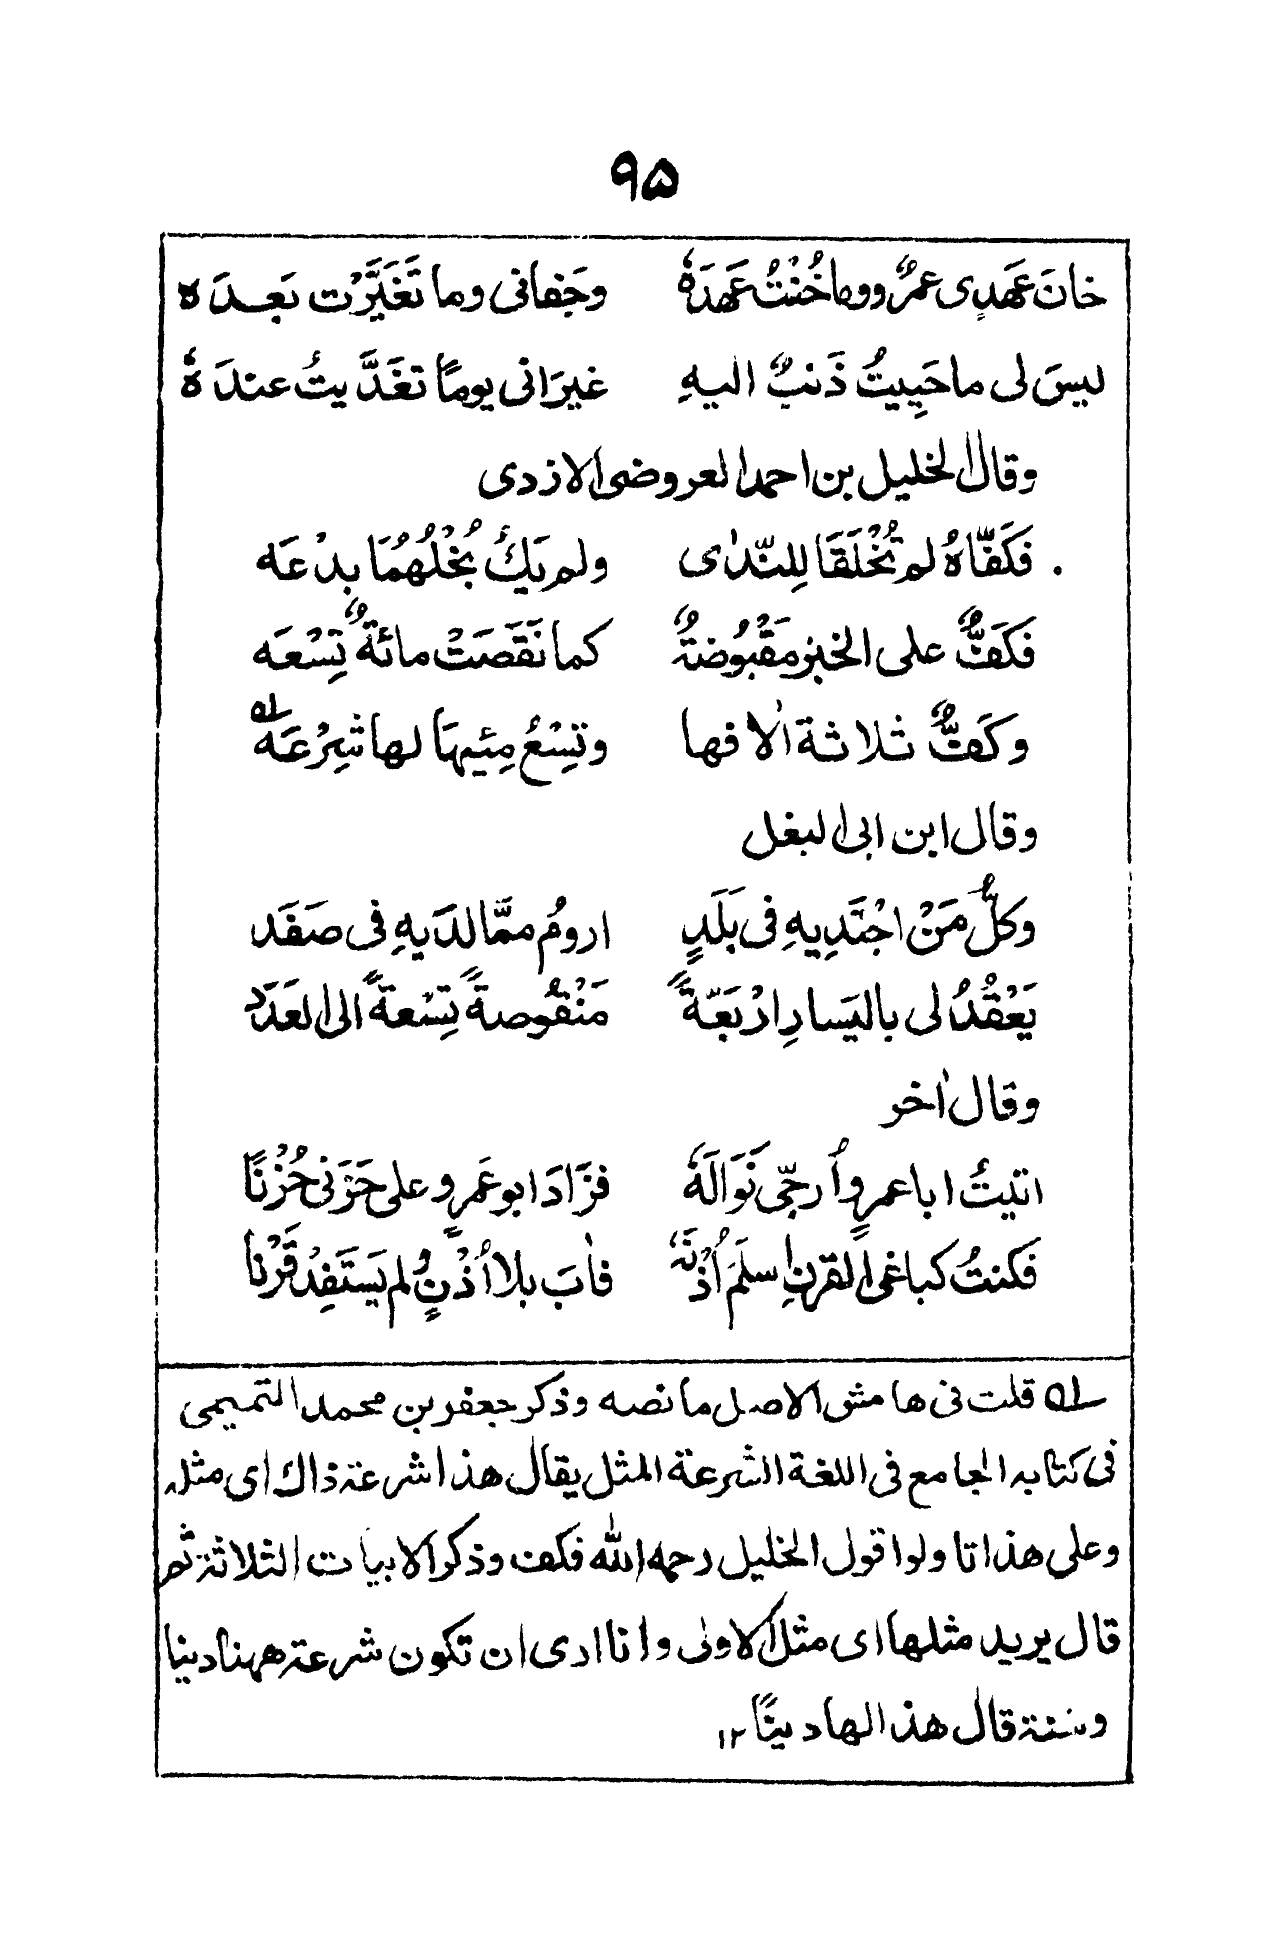 ۹۵
خانَ عَهَدِى عمرٌو وما خُنْتُ عَهدَهٗ وجَفانى وما تَغَيَّرْت بَعدَه
ليسَ لى ما حَيِيتُ ذَنبٌ اليهِ غيرَ انى يومًا تغَدَّيتُ عندَهٗ
وقال الخليل بن احمد العروضى الازدى
. فكَفّاهُ لم تُخْلَقَا لِلنّدٰى ولم يَكُ بُخْلُهُمَا بِدْعَه
فكَفٌّ على الخبز مَقْبُوضةٌ كما نَقَصَتْ مائةٌ تِسْعَه
وكَفٌّ ثلاثة اٰلافها وتِسْعُ مِئيهَا لها شِرْعَه ؎۱
وقال ابن ابى البغل
وكلُّ مَنْ اجْتَدِيهِ فى بَلَدٍ ارومُ ممَّا لدَيهِ فى صفَد
يَعْقُدُ لى باليَسارِ ارْبَعَةً مَنْقُوصةً تِسْعةً الى العَدَد
وقال اٰخر
اتيتُ ابا عمرٍو اُرجّى نَوَالَهٗ فزَادَ ابو عَمرٍو على حَزَنى حُزْنًا
فكنتُ كباغى القرنِ اسلَمَ اُذْنَهٗ فاٰبَ بلا اُذْنٍ ولم يَستَفِدْ قَرْنا
؎۱ قلت فى هامش الاصل ما نصه وذكر جعفر بن محمد التميمى
فى كتابه الجامع فى اللغة الشرعة المثل يقال هذا شرعة ذاك اى مثله
وعلى هذا تاولوا قول الخليل رحمه الله فكف وذكر الابيات الثلاثة ثم
قال يريد مثلها اى مثل الاولى وانا ارى ان تكون شرعة ههنا دينا
وسنة قال هذا لها دينًا ۱۲